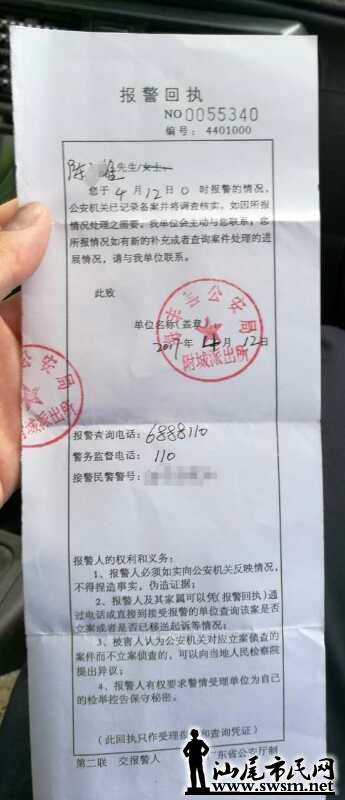 报警回执
NO 0055340
编号：4401000
先生/女士:
您于4月12日0时报警的情况,
公安机关已记录备案并将调查核实。如因所报
情况处理之需要，我单位会主动与您联系；您
所报情况如有新的补充或者查询案件处理的进
展情况，请与我单位联系。
此致
单位名称（盖章）
2017年4月12日
公安局
附城派出所
公安局
派出所
报警查询电话：6888110
警务监督电话：110
接警民警警号：
报警人的权利和义务：
1、报警人必须如实向公安机关反映情况，
不得捏造事实，伪造证据；
2、报警人及其家属可以凭《报警回执》通
过电话或直接到接受报警的单位查询该案是否
立案或者是否已移送起诉等情况。
3、被害人认为公安机关对应立案侦查的
案件而不立案侦查的，可以向当地人民检察院
提出异议；
4、报警人有权要求警情受理单位为自己的
检举控告保守秘密。
（此回执只作受理 和查询凭证）
第二联 交报警人 东省公安厅制
汕尾市民网
www.swsm.net